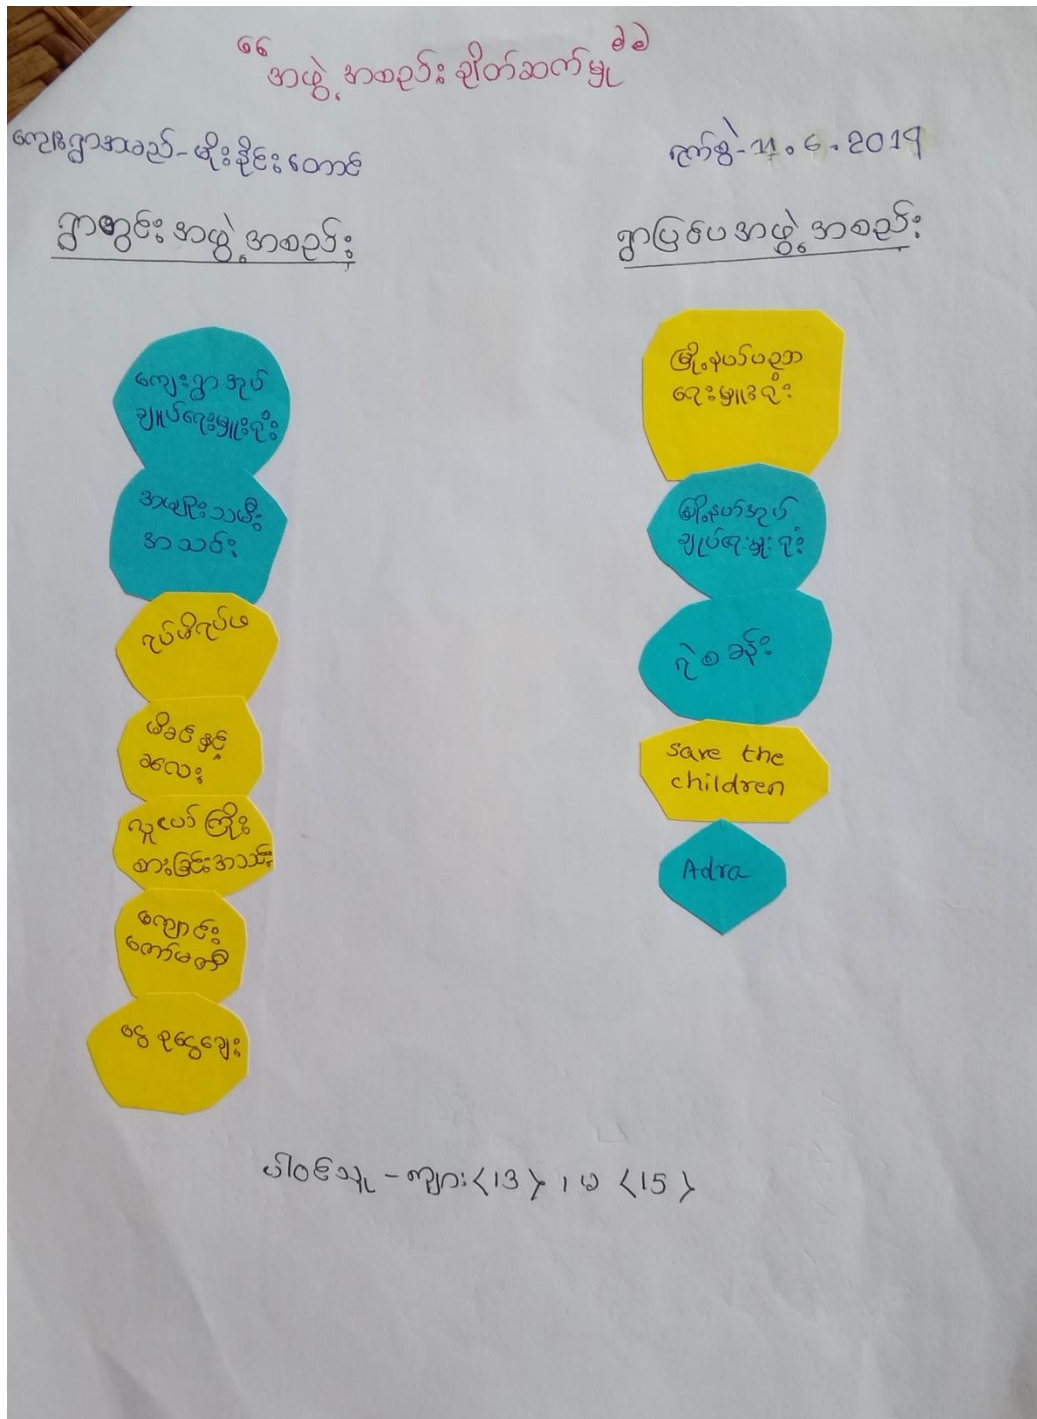 “အဖွဲ့အစည်းချိတ်ဆက်မှု”
ကျေးရွာအမည်-မိုးနိုင်းတောင်
ရက်စွဲ-11.6.2019
ရွာတွင်းအဖွဲ့အစည်း
ရွာပြင်ပအဖွဲ့အစည်း
ကျေးရွာအုပ်
ချုပ်ရေးမှူးရုံး
အမျိုးသမီး
အသင်း
ရပ်မိရပ်ဖ
မိခင်နှင့်
ကလေး
လူပေါ်ကြီး
စားခြင်းအသင်း
ကျောင်း
ကော်မတီ
ငွေစုငွေချေး
မြို့နယ်ပညာ
ရေးမှူးရုံး
မြို့နယ်အုပ်
ချုပ်ရေးမှူးရုံး
ရဲစခန်း
save the
children
Adra
ပါဝင်သူ - ကျား<13>၊ မ <15>